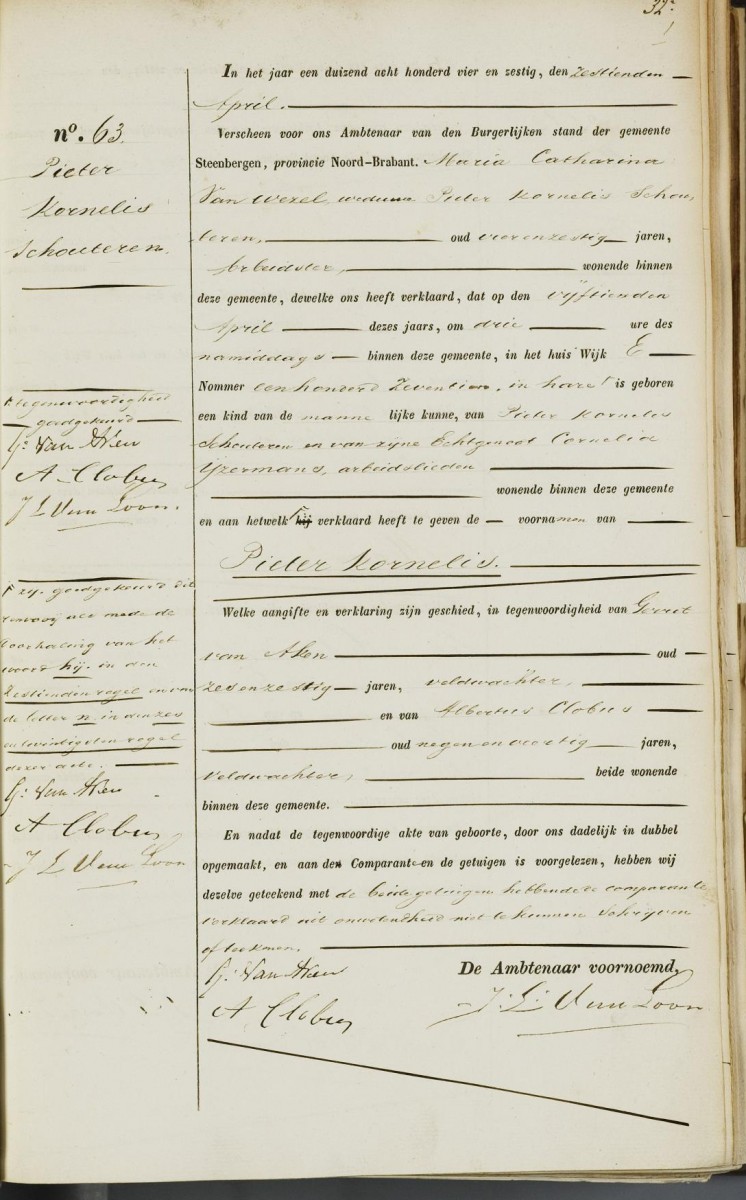 32
nº. 63.
Pieter
Kornelis
Schouteren.
In het jaar een duizend acht honderd vier en zestig, den zestienden
April.
Verscheen voor ons Ambtenaar van den Burgerlijken stand der gemeente
Steenbergen, provincie Noord-Brabant. Maria Catharina
Van Wezel, weduwe Pieter Kornelis Schou
teren, oud vierenzestig jaren,
Arbeidster, wonende binnen
deze gemeente, dewelke ons heeft verklaard, dat op den vijftienden
April dezes jaars, om drie ure des
namiddags binnen deze gemeente, in het huis Wijk E
Nommer een honderd zeventien, in hare is geboren
een kind van de manne lijke kunne, van Pieter Kornelis
Schouteren en van zijne Echtgenoot Cornelia
IJzermans, arbeidslieden
wonende binnen deze gemeente
en aan hetwelk hij verklaard heeft te geven de voornamen van
Pieter Kornelis.
Welke aangifte en verklaring zijn geschied, in tegenwoordigheid van Gerrit
van Aken oud
zesenzestig jaren, veldwachter,
en van Albertus Clobus
oud negenenveertig jaren,
Veldwachter, beide wonende
binnen deze gemeente.
En nadat de tegenwoordige akte van geboorte, door ons dadelijk in dubbel
opgemaakt, en aan den Comparante en de getuigen is voorgelezen, hebben wij
dezelve geteekend met de beide getuigen hebbende de comparante
verklaard uit onwetendheid niet te kunnen schrijven
of teekenen.
De Ambtenaar voornoemd.
G: Van Aken
A Clobus
J: L: Van Loon
tegenwoordigheid
goedgekeurd
G: Van Aken
A Clobus
J L Van Loon.
zij. goedgekeurd dit
renvooij als mede de
doorhaling van het
woord hij. in den
zestienden regel en van
de letter n in den zes
en twintigsten regel
dezer acte.
G: Van Aken
A Clobus
J L Van Loon